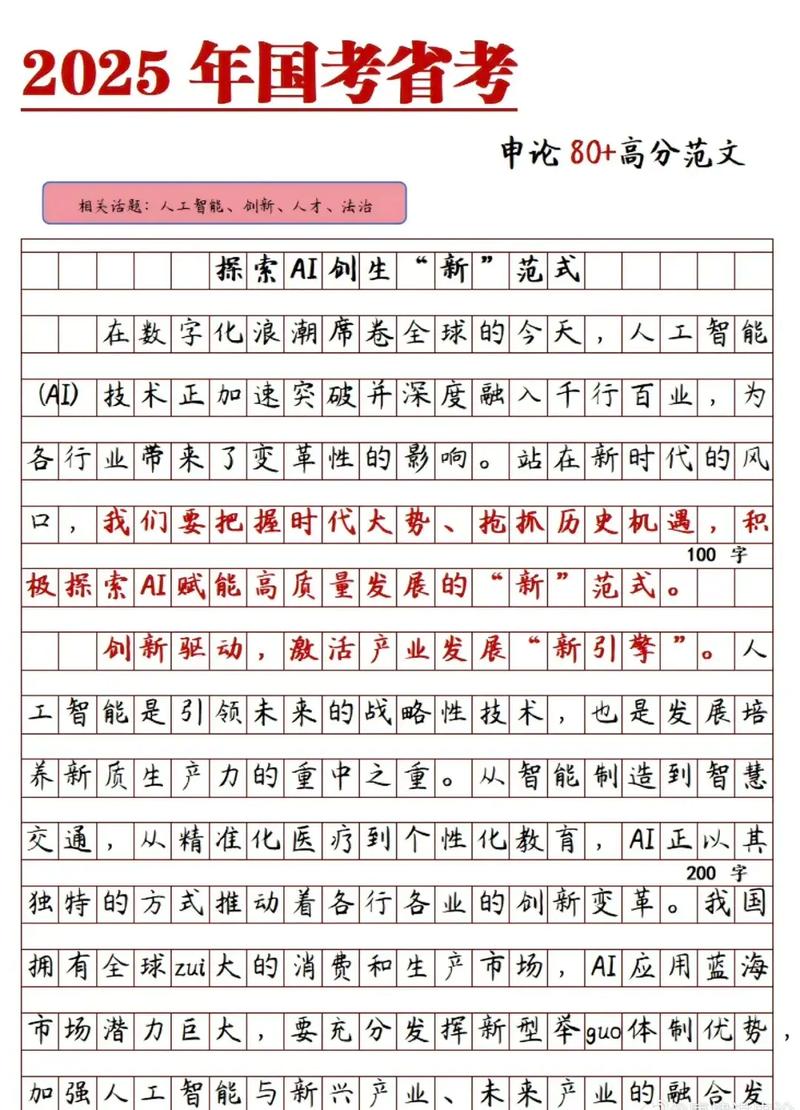 2025 年国考省考
申论 80+高分范文
相关话题：人工智能、创新、人才、法治
探索AI创生“新”范式
在数字化浪潮席卷全球的今天，人工智能
（AI）技术正加速突破并深度融入千行百业，为
各行业带来了变革性的影响。站在新时代的风
口，我们要把握时代大势、抢抓历史机遇，积
100 字
极探索AI赋能高质量发展的“新”范式。
创新驱动，激活产业发展“新引擎”。人
工智能是引领未来的战略性技术，也是发展培
养新质生产力的重中之重。从智能制造到智慧
交通，从精准化医疗到个性化教育，AI正以其
200 字
独特的方式推动着各行各业的创新变革。我国
拥有全球zui大的消费和生产市场，AI应用蓝海
市场潜力巨大，要充分发挥新型举guo体制优势，
加强人工智能与新兴产业、未来产业的融合发